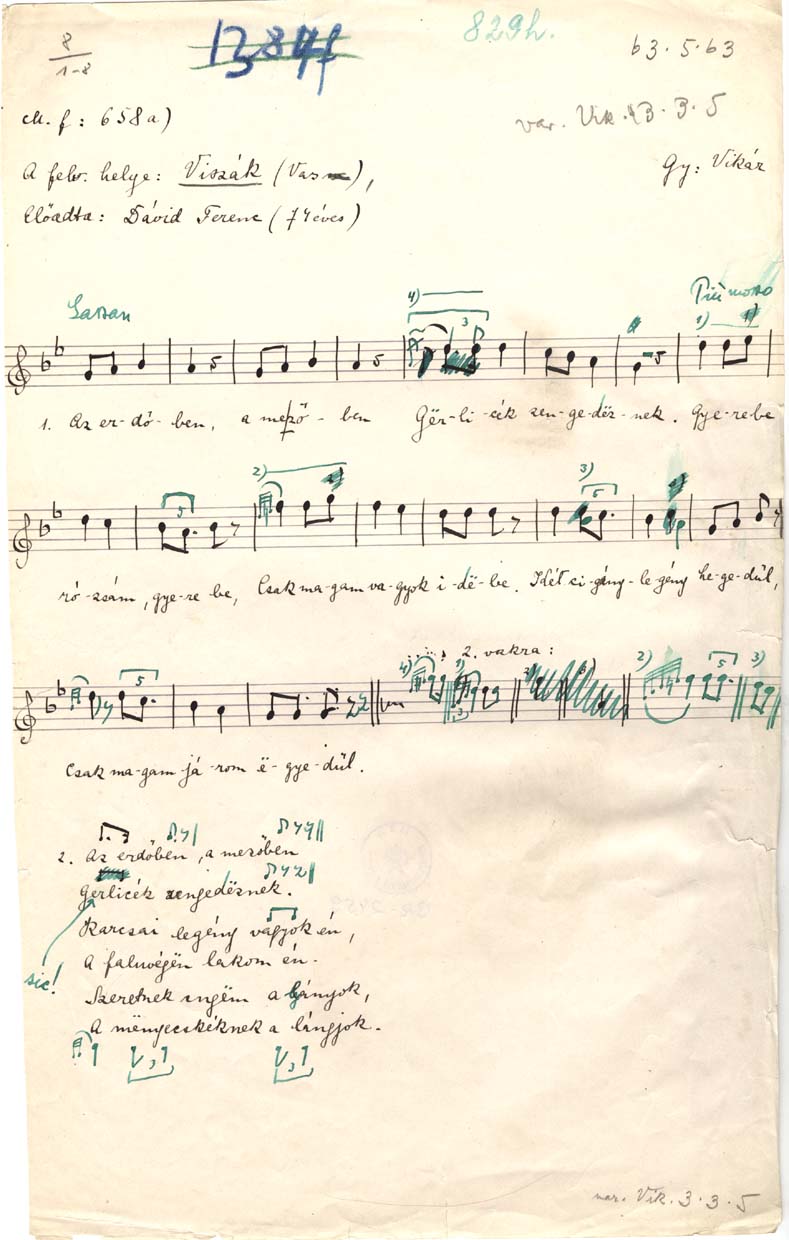 8
1-8
829h.
63.5.63
M. f: 658a)
var. Vik. 3.3.5
A felv. helye: Viszák (Vas),
Gy: Vikár
Előadta: Dávid Ferenc (74 éves)
Lassan
4)
3
Più mosso
1)
1. Az er-dő-ben, a mező-ben Gër-li-cék zen-ge-dëz-nek. Gye-re be
2)
3)
5
5
ró-zsám, gye-re be, Csak ma-gam va-gyok i-dë-be. Idét ci-gány-le-gény he-ge-dül,
5
2. vakra:
4)
1)
2)
5
3)
Csak ma-gam já-rom ë-gye-dül.
2. Az erdőben, a mezőben
Gerlicék zengedëznek.
Karcsai legény vagyok én,
A faluvégën lakom én.
sic!
Szeretnek engëm a lányok,
A mënyecskéknek a lángjok.
3
3
var. Vik. 3.3.5